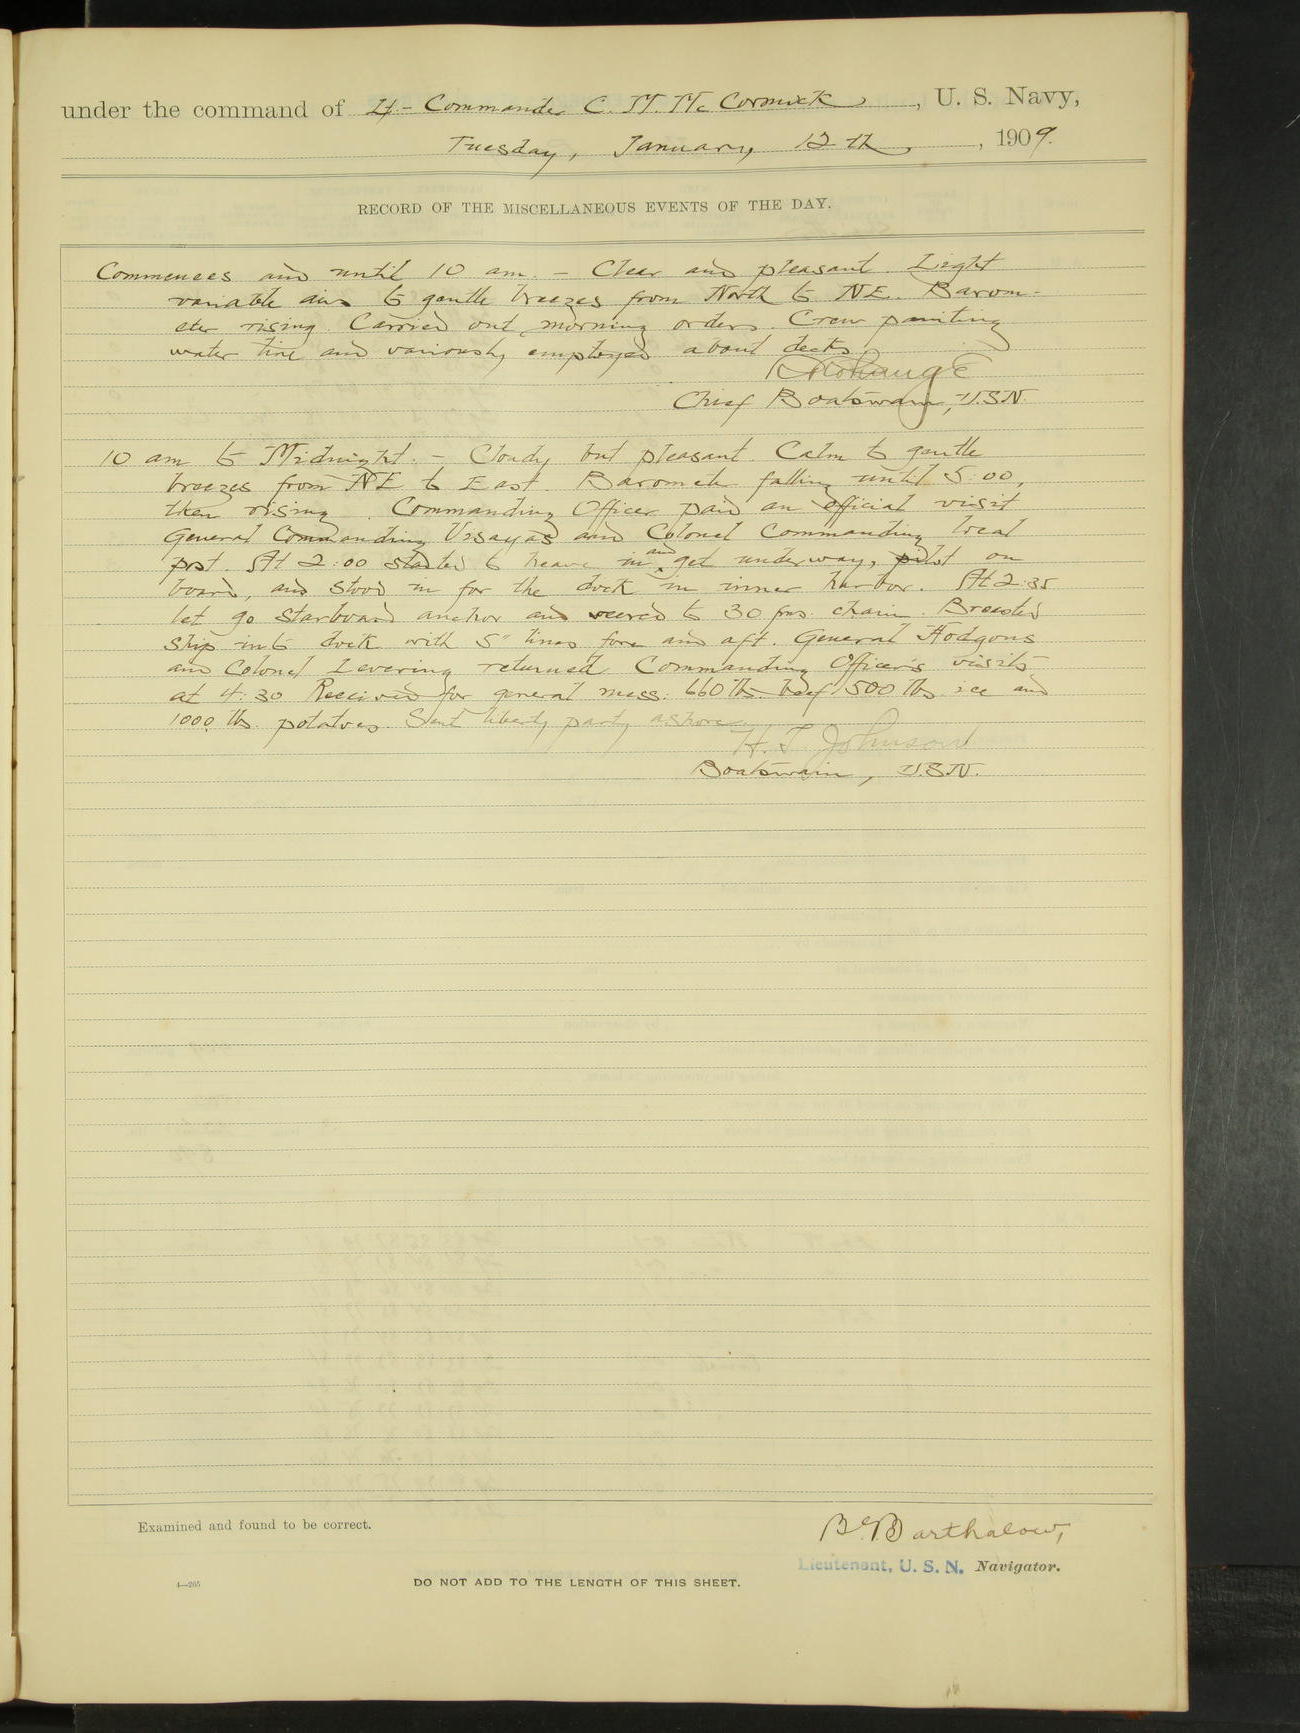 under the command of Lt-Commander C. M. McCormick, U. S. Navy,
Tuesday, January 12th, 1909.
RECORD OF THE MISCELLANEOUS EVENTS OF THE DAY.
Commences and until 10 am. - Clear and pleasant. Light
variable airs to gentle breezes from North to NE. Barom-
eter rising. Carried out morning orders. Crew painting
water line and variously employed about decks.
Chief Boatswain, U.S.N.
10 am to Midnight. - Cloudy but pleasant. Calm to gentle
breezes from NE to East. Barometer falling until 5:00,
then rising. Commanding Officer paid an official visit
General Commanding Visayas and Colonel Commanding local
post. At 2:00 started to heave in and get underway, pilot on
board, and stood in for the dock in inner harbor. At 2:35
let go starboard anchor and veered to 30 fms. chain. Breasted
ship into dock with 5" lines fore and aft. General Hodgons
and Colonel Levering returned Commanding Officer's visits
at 4:30 Received for general mess: 660 lbs. beef 500 lbs ice and
1000 lbs. potatoes. Sent liberty party ashore.
H. T. Johnson
Boatswain, U.S.N.
Examined and found to be correct.
Barthalow,
Lieutenant, U. S. N. Navigator.
4—205
DO NOT ADD TO THE LENGTH OF THIS SHEET.